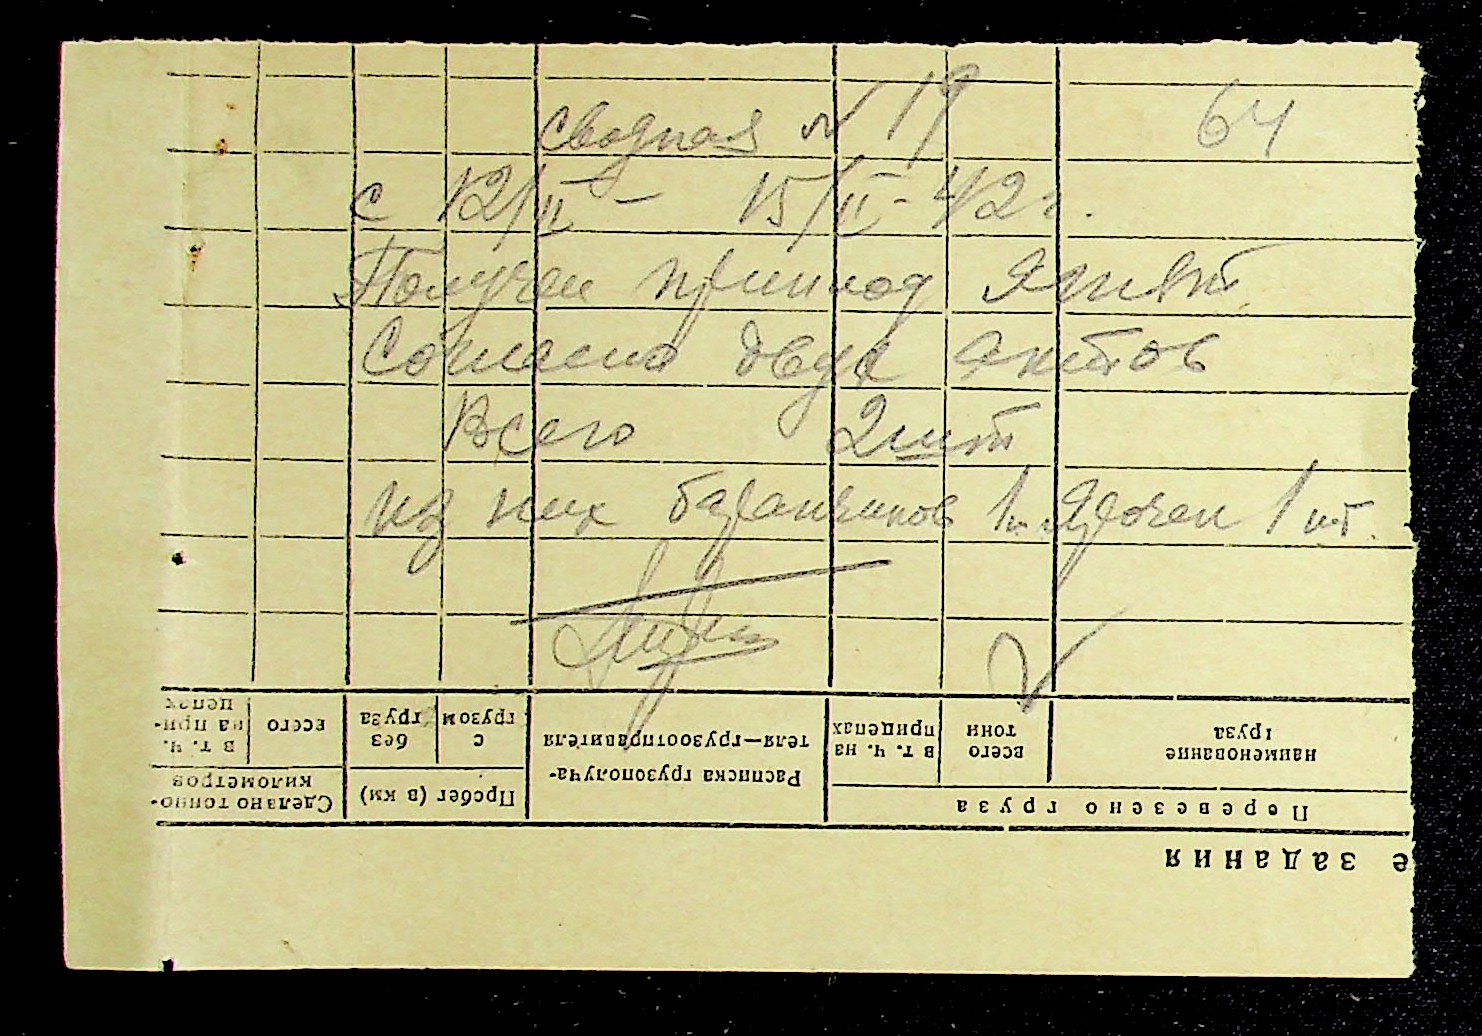 Сводная N 19 64
с 12/II - 15/II-42 г.
Получен приплод ягнят
Согласно двух актов
Всего 2 шт
из них баранчиков 1 шт ярочек 1 шт.
е задания
Перевезено груза
наименование груза
всего тонн
в т. ч. на прицепах
Расписка грузополуча-
теля—грузоотправителя
Пробег (в км)
с грузом
без груза
Сделано тонно-
километров
всего
в т. ч. на при-
цепах